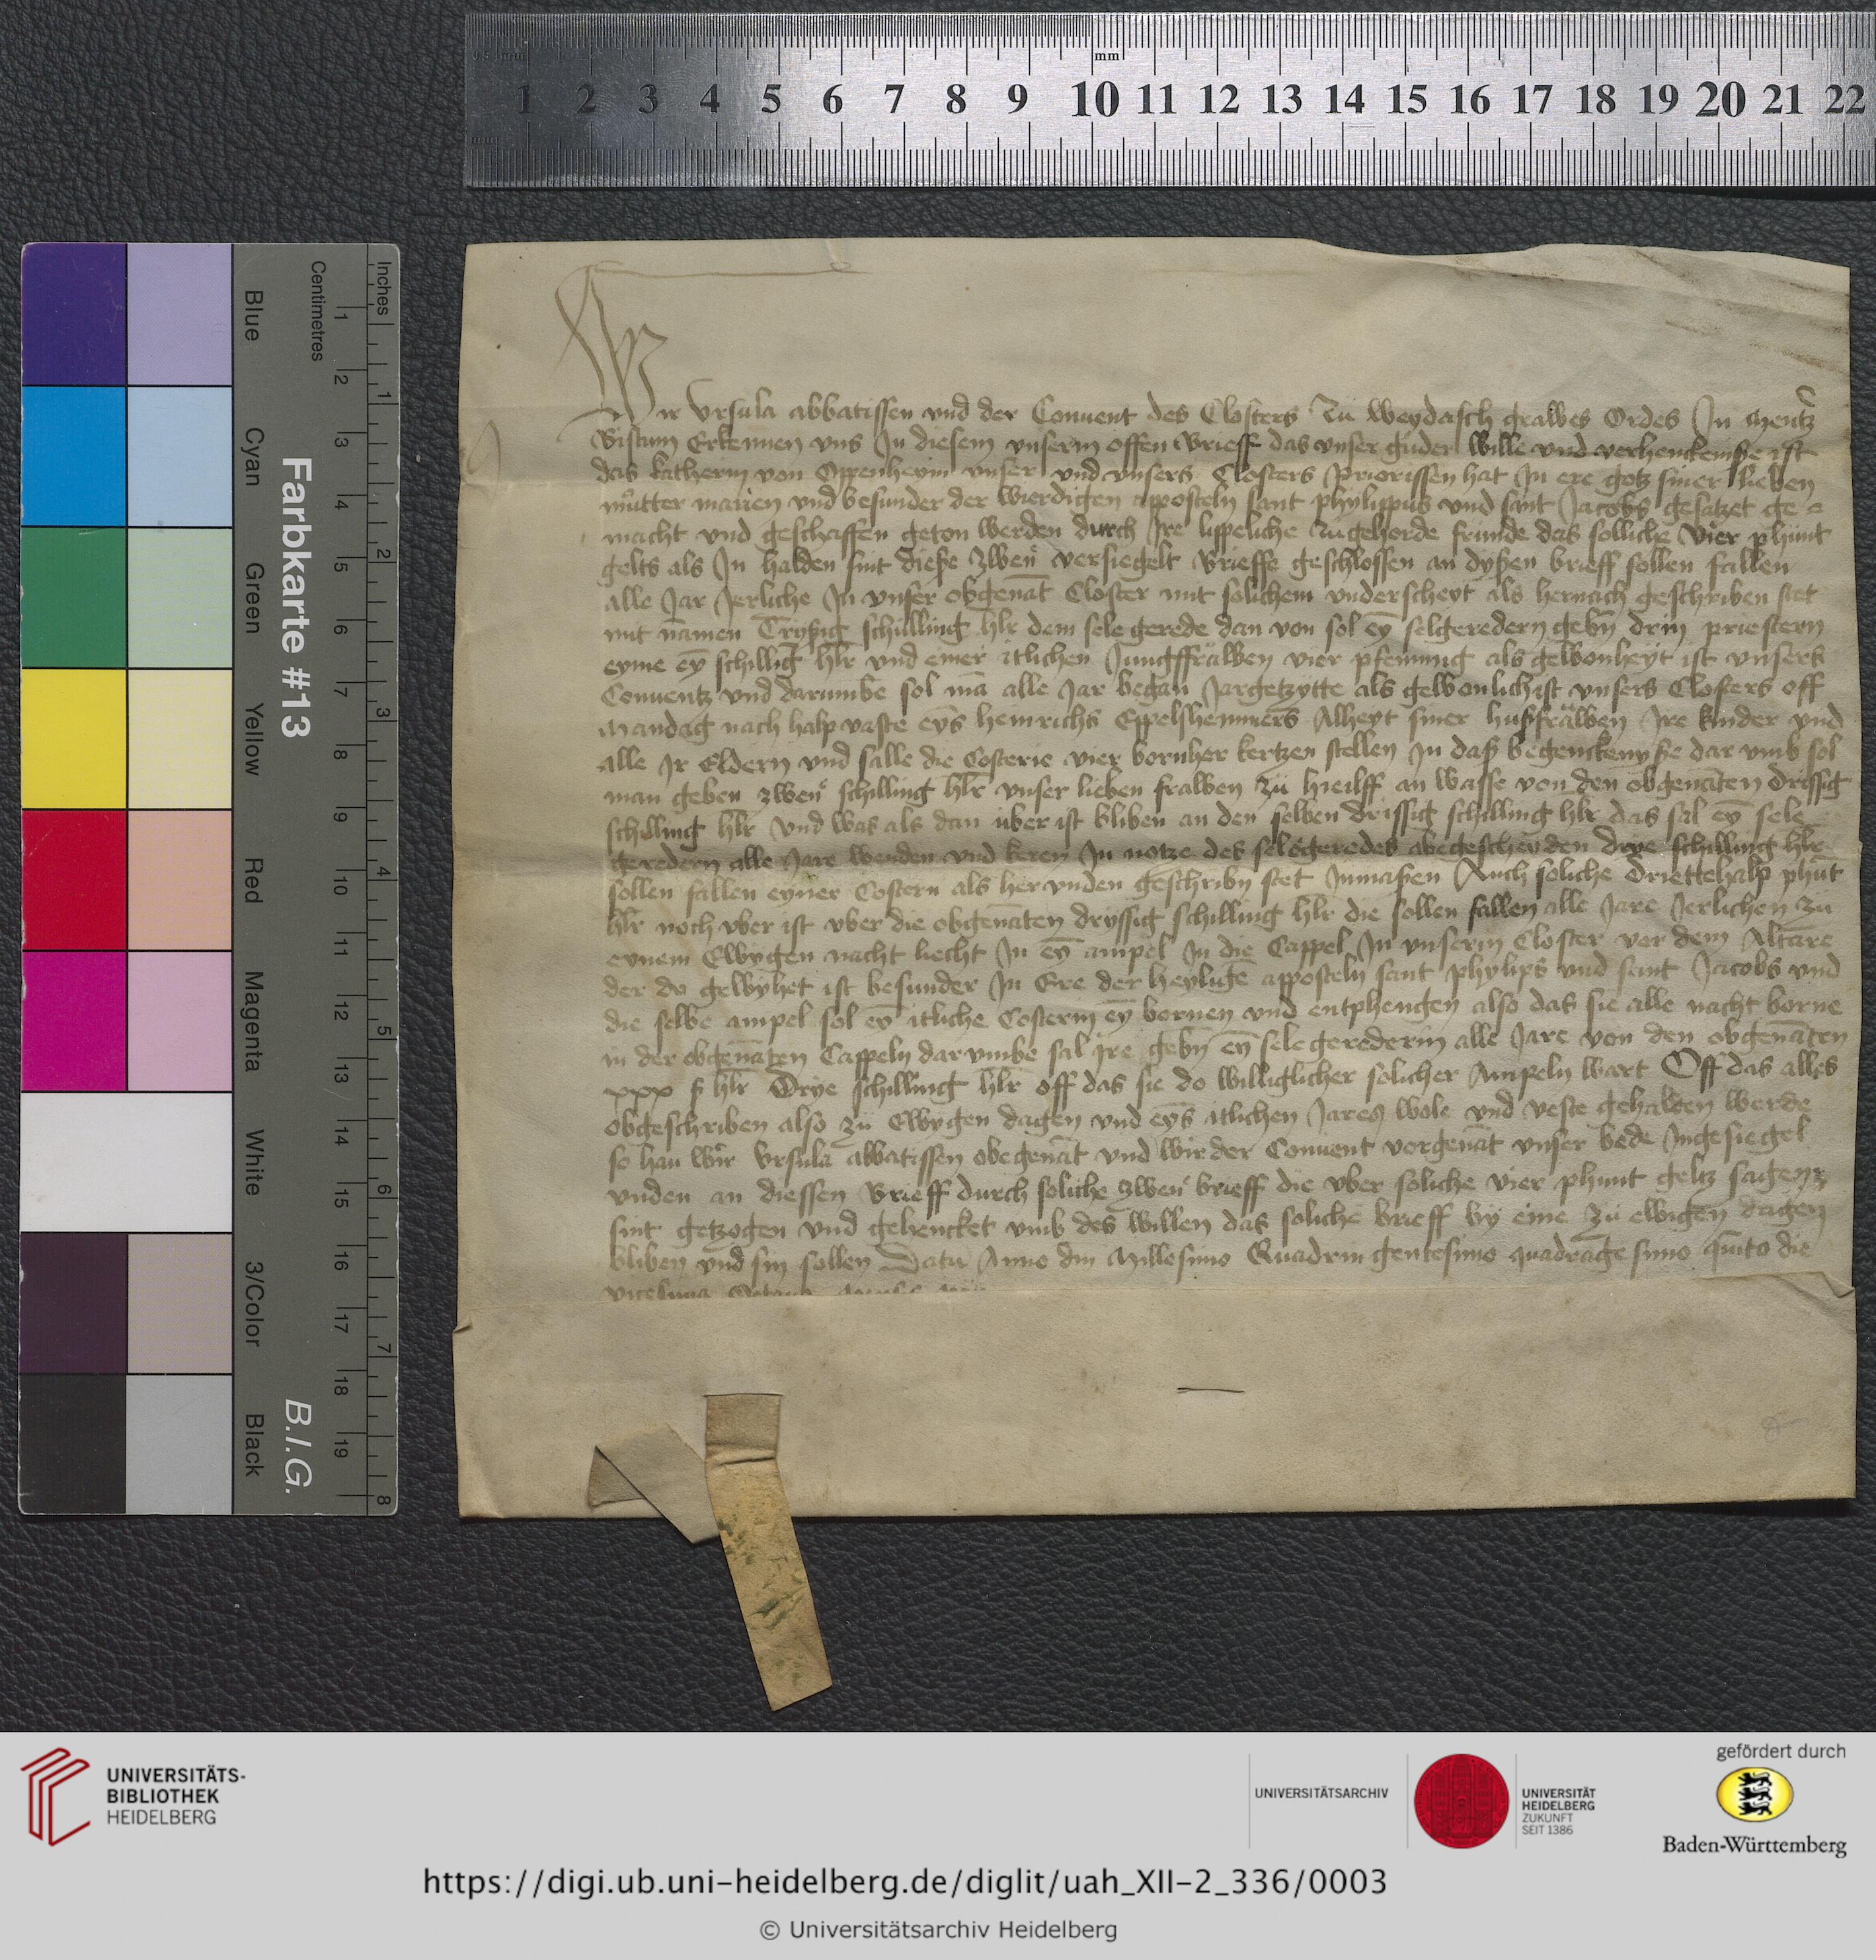 1 2 3 4 5 6 7 8 9 10 11 12 13 14 15 16 17 18 19 20 21 22
mm
Inches 1 2 3 4 5 6 7 8
Centimetres 1 2 3 4 5 6 7 8 9 10 11 12 13 14 15 16 17 18 19
Farbkarte #13 B.I.G.
Blue
Cyan
Green
Yellow
Red
Magenta
White
3/Color
Black
Wir Vrsula abbatissen vnd der Conuent des Closters Zu Weydasch grawes Ordes In Mentz
Bistum Erkennen vns In diesem vnserm offen Brieff das vnser guder wille vnd verhengeniße ist
das katherin von Oppenheym vnser vnd vnsers Closters Priorissen hat In ere gotz siner lieben
mutter marien vnd besunder der wierdigen apposteln sant phylippus vnd sant Jacobs gesatzet ge
macht vnd geschaffen geton werden durch Ire lippeliche zugehorde frunde das solliche vier phunt
gelts als In halden sint dieße zwen versiegelt brieffe geschlossen an dyßen brieff sollen fallen
alle Jar Jerliche In vnser obgenat Closter mit solichem vnderscheyt als hernach geschriben stet
mit namen Tryßig schilling hlr dem sele gerede dan von sol ey selgeredern gebn drin priestern
eyme ey schillig hlr vnd einer itlichen Jungffrawen vier pfennig als gewonheyt ist vnsers
Conuentz vnd darumbe sol ma alle Jar began Jargetzytte als gewonlich ist vnsers Closters off
Mandag nach halp vaste eys heinrichs Eppelsheymers Alheyt siner hußfrawen Ire kinder vnd
alle Ir Eldern vnd salle die Costerie vier bornher kertzen stellen In daß begenckenyße dar vmb sol
man geben zwen schilling hlr vnser lieben frawen zu hieilff an wasse von den obgenaten drissig
schilling hlr vnd was als dan uber ist bliben an den selben drissig schilling hlr das sal ey sele
geredern alle Jare wenden vnd keren In notze des selegeredes abegescheyden drye schilling hlr
sollen fallen eyner Costern als her vnden geschribn stet Inmaßen Auch soliche driettehalp phut
hlr noch vber ist vber die obgenaten dryssig schilling hlr die sollen fallen alle Jare Jerlichen zu
eynem Ewygen nacht liecht In ey ampel In die Cappel In vnserm Closter vor dem Altare
der do gewyhet ist besunder In Ere der heylige apposteln sant phylips vnd sant Jacobs vnd
die selbe ampel sol ey itliche Costerin ey bornen vnd entphengen also das sie alle nacht borne
in der obgenaten Cappeln dar vmbe sal ire gebn ey sele gerederin alle Jare von den obgenaten
xxx ß hlr Drye schilling hlr off das sie do williglicher solicher Ampeln wart Off das alles
obgeschriben also zu Ewygen dagen vnd eys itlichen Jares wole vnd veste gehalden werde
so han wir Vrsula abbatissen obegenat vnd wir der Conuent vorgenat vnser bede Ingesiegel
vnden an diessen Brieff durch soliche zwen brieff die vber soliche vier phunt geltz sagen
sint getzogen vnd gehencket vmb des willen das soliche brieff by eine zu ewigen dagen
bliben vnd sin sollen Datu Anno dm Millesimo Quadringentesimo quadragesimo quito die
UNIVERSITÄTS-
BIBLIOTHEK
HEIDELBERG
UNIVERSITÄTSARCHIV
UNIVERSITÄT
HEIDELBERG
ZUKUNFT
SEIT 1386
gefördert durch
Baden-Württemberg
https://digi.ub.uni-heidelberg.de/diglit/uah_XII-2_336/0003
© Universitätsarchiv Heidelberg